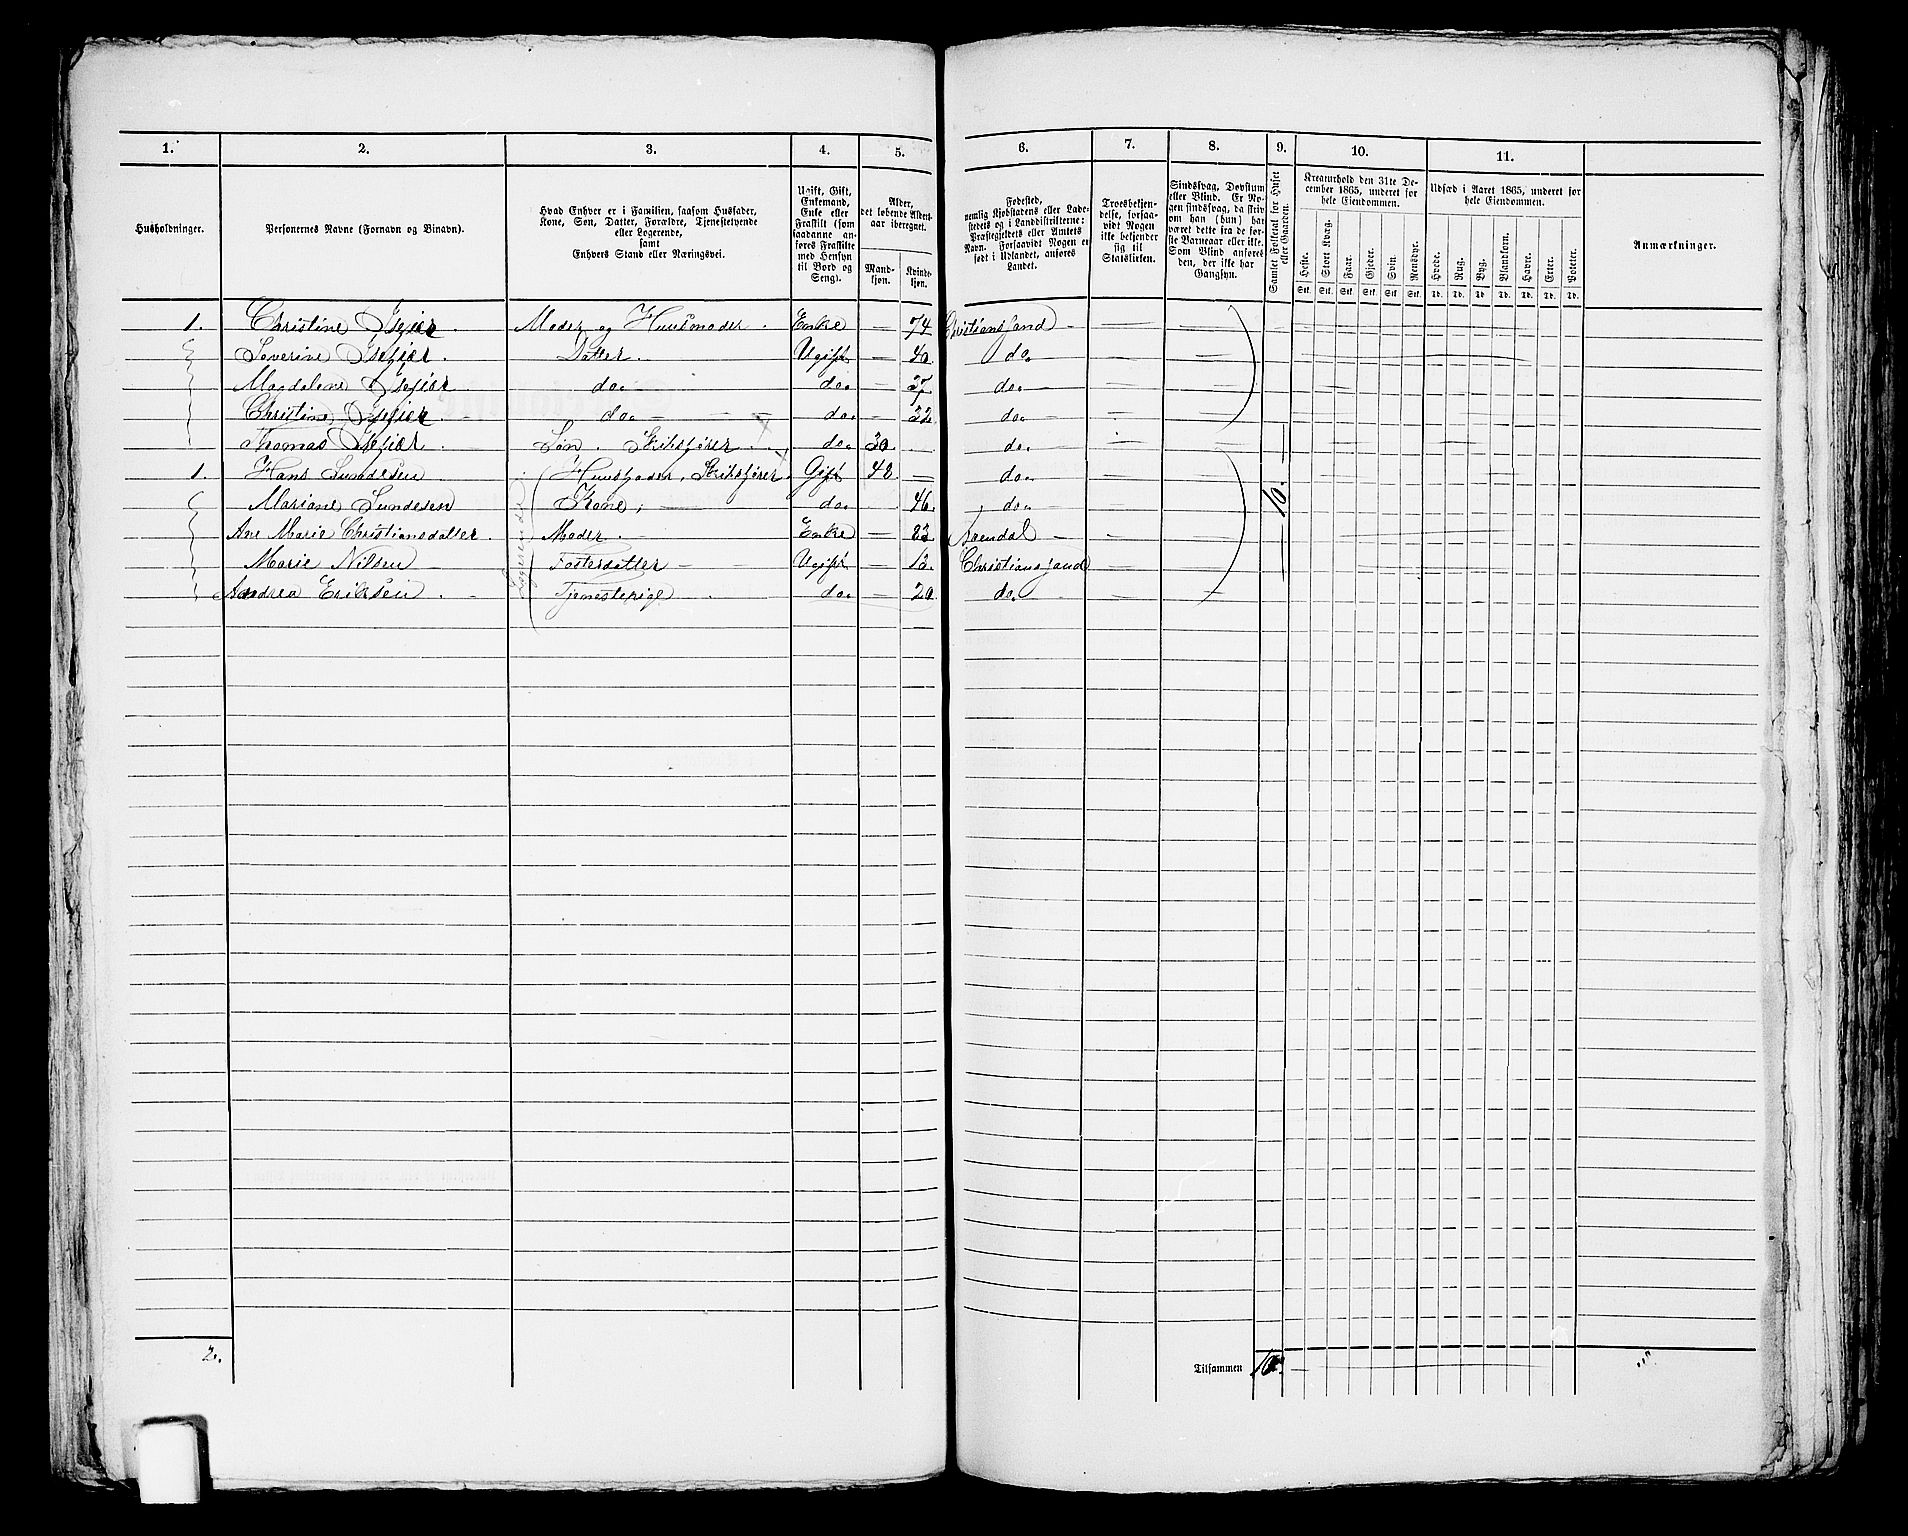 1. 2. 3. 4. 5. 6. 7. 8. 9. 10. 11.
Husholdninger.
Personernes Navne (Fornavn og Binavn).
Hvad Enhver er i Familien, saasom Husfader,
Kone, Søn, Datter, Forældre, Tjenestetyende
eller Logerende,
samt
Enhvers Stand eller Næringsvei.
Ugift, Gift,
Enkemand,
Enke eller
Fraskilt (som
saadanne an-
føres Fraskilte
med Hensyn
til Bord og
Seng).
Alder,
det løbende Alders-
aar iberegnet.
Mand-
kjøn.
Kvinde-
kjøn.
Fødested,
nemlig Kjøbstadens eller Lade-
stedets og i Landdistrikterne:
Præstegjeldets eller Amtets
Navn. Forsaavidt Nogen er
født i Udlandet, anføres
Landet.
Troesbekjen-
delse, forsaa-
vidt Nogen
ikke bekjender
sig til
Statskirken.
Sindssvag, Døvstum
eller Blind. Er No-
gen sindssvag, da skriv
om han (hun) har
været dette fra de før-
ste Barneaar eller ikke.
Som Blind anføres
den, der ikke har
Gangsyn.
Samlet Folketal for Huset
eller Gaarden.
Kreaturhold den 31te De-
cember 1865, underet for
hele Eiendommen.
Heste. Stort Kvæg. Faar. Gjeder. Svin. Rensdyr.
Stk. Stk. Stk. Stk. Stk. Stk.
Udsæd i Aaret 1865, underet for
hele Eiendommen.
Hvede. Rug. Byg. Blandkorn. Havre. Erter. Poteter.
Td. Td. Td. Td. Td. Td. Td.
Anmærkninger.
1. Christine Isefiær. Moder og Huusmoder. Enke — 74 Christianssand —
Severine Isefiær. Datter. Ugift — 40. do.
Magdalene Isefiær do. do. — 37 do.
Christine Isefiær. do. do. — 32. do.
Thomas Isefiær. Søn. do. 30. do.
1. Hans Sundesen Huusfader, Gift 42. — do.
Mariane Sundesen Kone, do. 46. do.
Ane Marie Christiansdatter. Moder. Enke — 83. Arendal
Marie Nilsen Fosterdatter Ugift — 12. Christianssand
Andrea Eriksen. Tjenestepige do. — 20 do.
Logerende
10.
2.
Tilsammen 10.